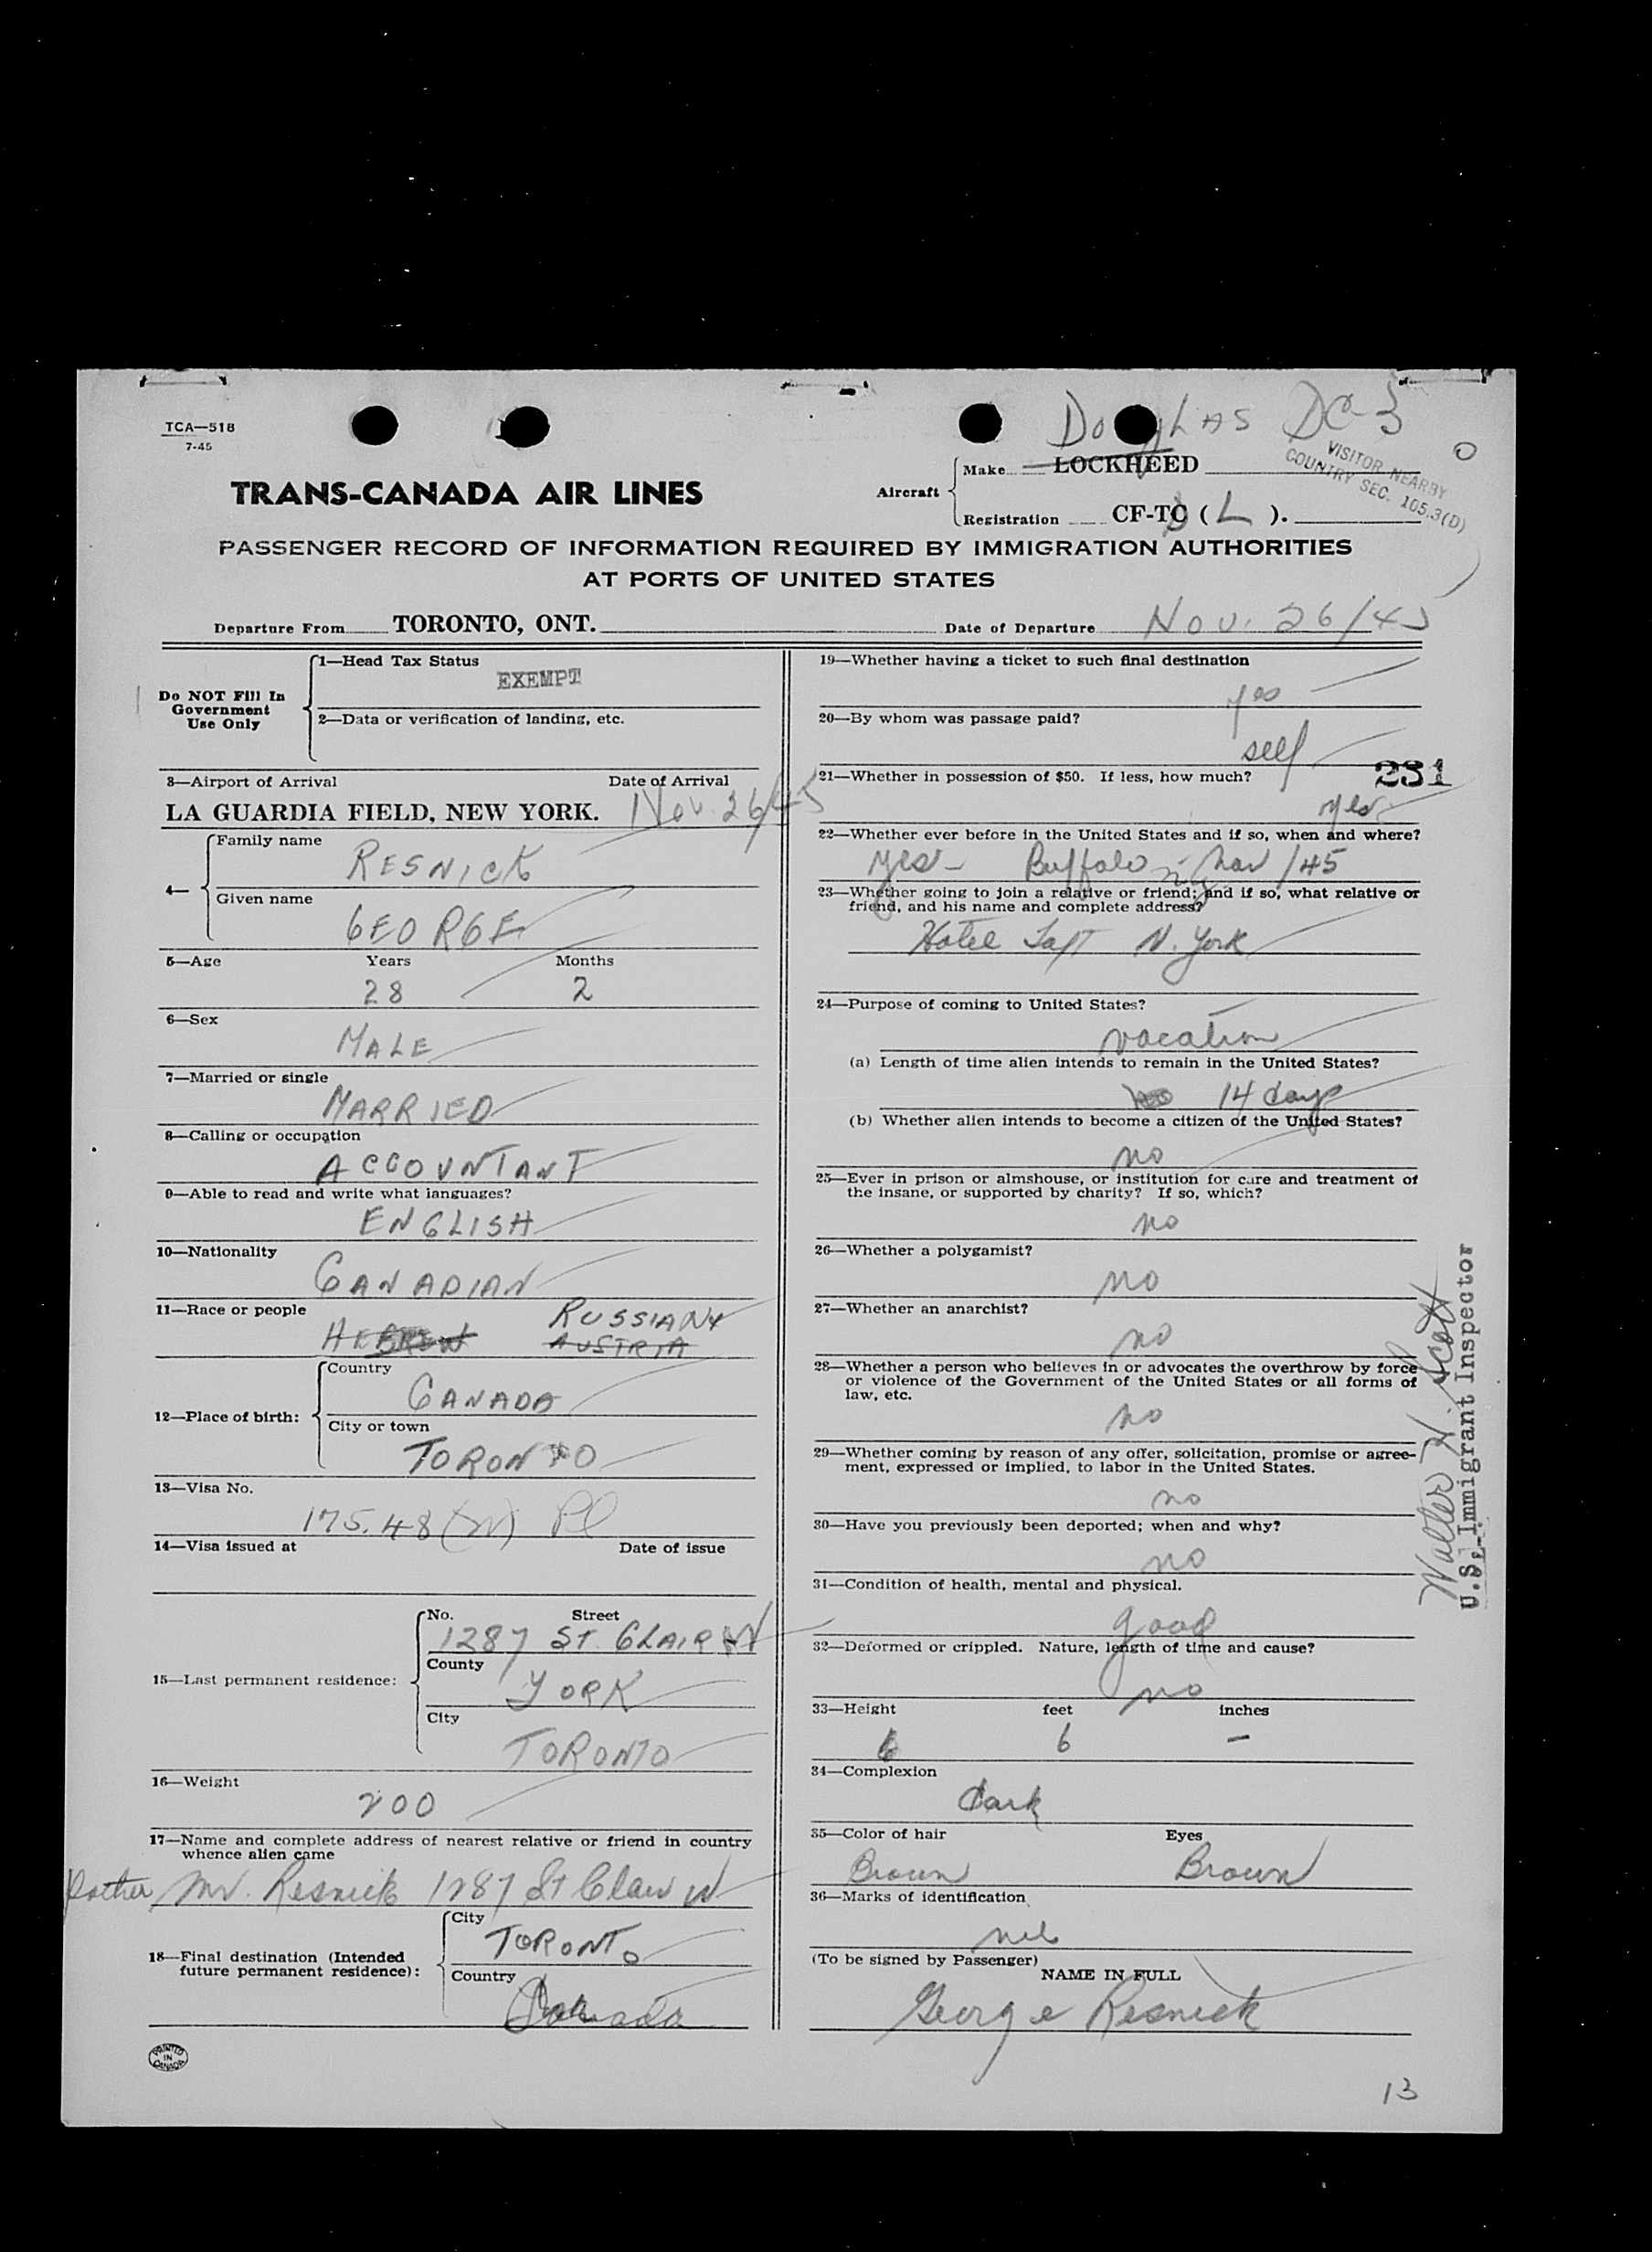 TCA—518
7-45
DOUGLAS DC-3
VISITOR NEARBY
COUNTRY SEC. 105.3(D)
TRANS-CANADA AIR LINES
Aircraft
Make LOCKHEED
Registration CF-TC ( L ).
PASSENGER RECORD OF INFORMATION REQUIRED BY IMMIGRATION AUTHORITIES
AT PORTS OF UNITED STATES
Departure From TORONTO, ONT. Date of Departure Nov. 26/45
Do NOT Fill In
Government
Use Only
1—Head Tax Status
EXEMPT
2—Data or verification of landing, etc.
3—Airport of Arrival Date of Arrival
LA GUARDIA FIELD, NEW YORK. Nov. 26/45
4—
Family name
RESNICK
Given name
GEORGE
5—Age Years Months
28 2
6—Sex
MALE
7—Married or single
MARRIED
8—Calling or occupation
ACCOUNTANT
9—Able to read and write what languages?
ENGLISH
10—Nationality
CANADIAN
11—Race or people
RUSSIAN
HEBREW AUSTRIA
12—Place of birth:
Country
CANADA
City or town
TORONTO
13—Visa No.
175.48
14—Visa issued at Date of issue
15—Last permanent residence:
No. Street
1287 ST. CLAIR W
County
YORK
City
TORONTO
16—Weight
200
17—Name and complete address of nearest relative or friend in country
whence alien came
Father Mr. Resnick 1287 St Clair W
18—Final destination (Intended
future permanent residence):
City
TORONTO
Country
Canada
PRINTED
IN
CANADA
19—Whether having a ticket to such final destination
yes
20—By whom was passage paid?
self
21—Whether in possession of $50. If less, how much?
231
yes
22—Whether ever before in the United States and if so, when and where?
yes - Buffalo NY /45
23—Whether going to join a relative or friend; and if so, what relative or
friend, and his name and complete address?
Hotel Taft N. York
24—Purpose of coming to United States?
vacation
(a) Length of time alien intends to remain in the United States?
14 days
(b) Whether alien intends to become a citizen of the United States?
no
25—Ever in prison or almshouse, or institution for care and treatment of
the insane, or supported by charity? If so, which?
no
26—Whether a polygamist?
no
27—Whether an anarchist?
no
28—Whether a person who believes in or advocates the overthrow by force
or violence of the Government of the United States or all forms of
law, etc.
no
29—Whether coming by reason of any offer, solicitation, promise or agree-
ment, expressed or implied, to labor in the United States.
no
30—Have you previously been deported; when and why?
no
31—Condition of health, mental and physical.
good
32—Deformed or crippled. Nature, length of time and cause?
no
33—Height feet inches
6 6 —
34—Complexion
dark
35—Color of hair Eyes
Brown Brown
36—Marks of identification
nil
(To be signed by Passenger)
NAME IN FULL
George Resnick
Walter H. Scott
U.S. Immigrant Inspector
13